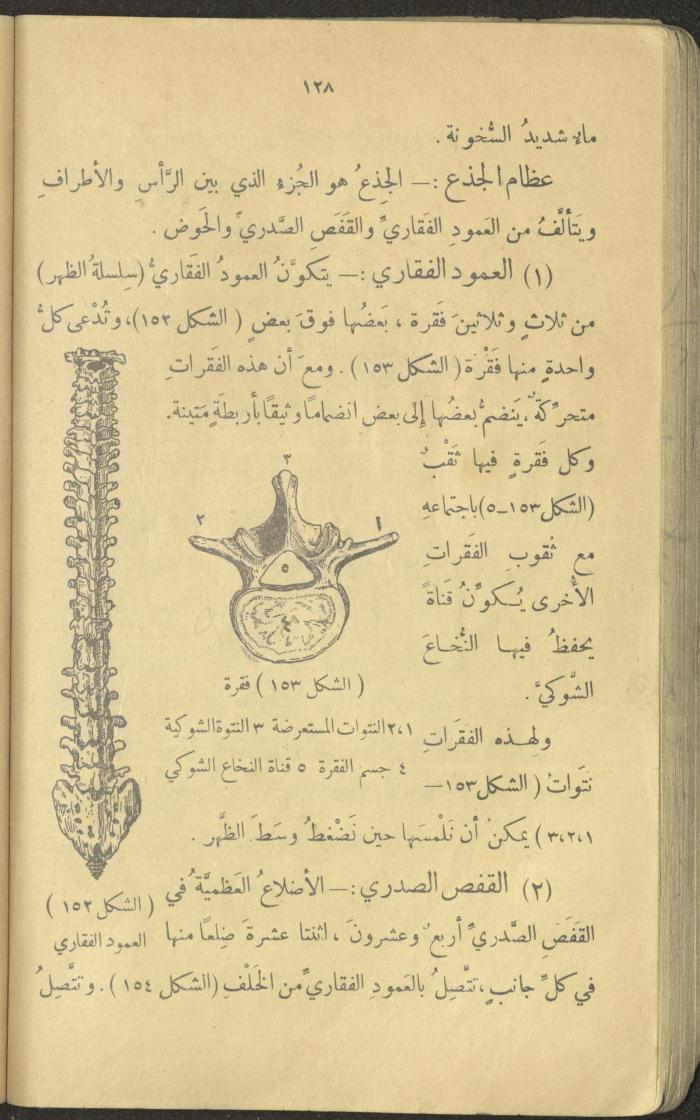 ١٢٨
ماءٍ شديدُ السُّخونة .
عظام الجذع :— الجِذعُ هو الجُزءِ الذي بين الرَّأسِ والأطرافِ
ويَتألَّفُ من العَمودِ الفَقاريِّ والقَفَصِ الصَّدريِّ والحَوض .
(١) العمود الفقاري :— يتكوَّنُ العمودُ الفَقاريُّ (سِلسلةُ الظهر)
من ثلاثٍ وثلاثينَ فَقرة ، بَعضُها فوقَ بعضٍ ( الشكل ١٥٢)، وتُدْعى كلُّ
واحدةٍ منها فَقْرَة ( الشكل ١٥٣ ) . ومعَ أن هذه الفَقراتِ
متحرِّكةٌ ، يَنضمُّ بعضُها إلى بعض انضماماً وثيقاً بأربطةٍ مَتينة.
وكل فَقرةٍ فيها ثَقْبٌ
(الشكل ١٥٣ــ٥) باجتماعهِ
مع ثُقوبِ الفَقراتِ
الأُخرى يُكوِّنُ قَناةً
يحفظُ فيها النُّخاعَ
الشَّوكيَّ .
٣
٢
١
٥
٤
( الشكل ١٥٣ ) فقرة
٢،١ النتوات المستعرضة ٣ النتوة الشوكية
٤ جسم الفقرة ٥ قناة النخاع الشوكي
ولهذه الفقَراتِ
نتَواتٌ ( الشكل ١٥٣—
٣،٢،١ ) يمكنُ أن نَلْمسَها حين نَضْغطُ وسَطَ الظَّهر .
(٢) القفص الصدري :— الأضلاعُ العَظميَّةُ في
القَفَصِ الصَّدريِّ أربعٌ وعشرونَ ، اثنتا عشرةَ ضِلعاً منها
في كلِّ جانبٍ ، تتَّصِلُ بالعَمودِ الفقاريِّ من الخَلْفِ (الشكل ١٥٤ ) . وتتَّصِلُ
( الشكل ١٥٢ )
العمود الفقاري